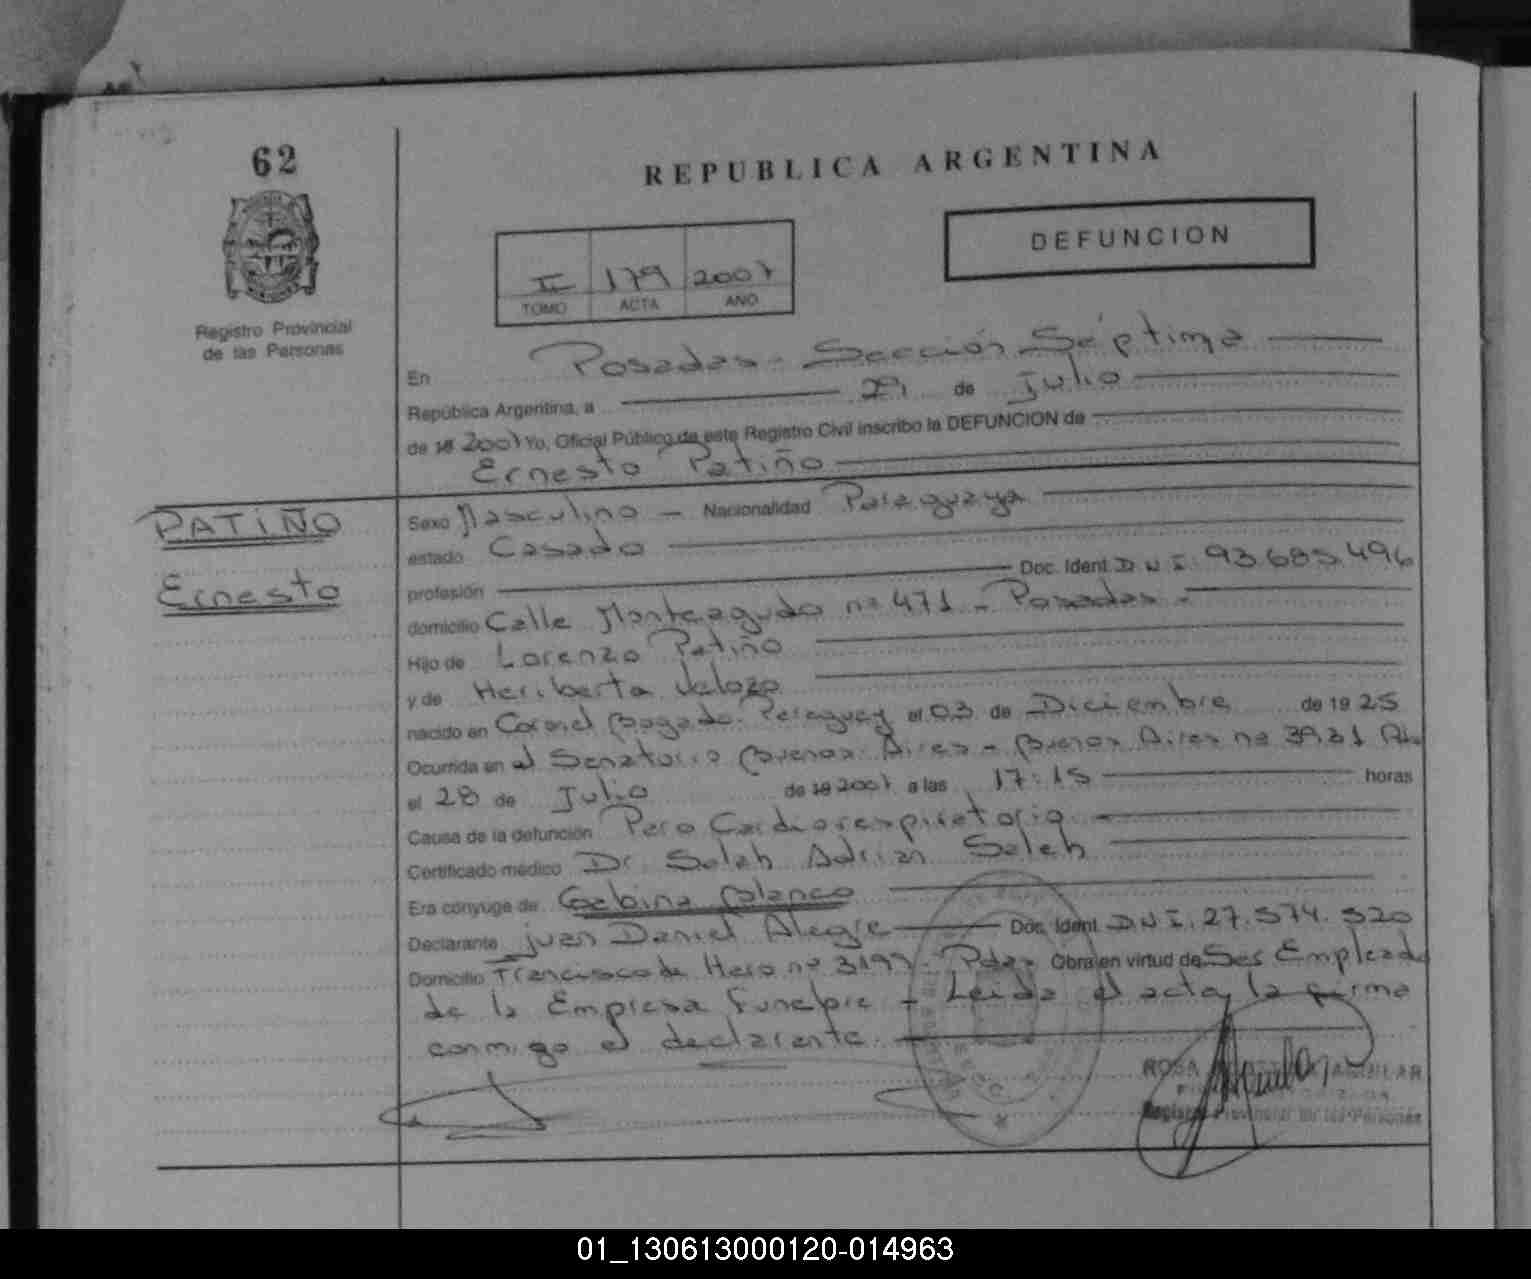 62
REPUBLICA ARGENTINA
DEFUNCION
II 179 2007
TOMO ACTA AÑO
Registro Provincial
de las Personas
En Posadas - Sección Séptima
República Argentina, a 29 de Julio
de 2007 Yo, Oficial Público de este Registro Civil inscribo la DEFUNCION de
Ernesto Patiño
PATIÑO
Ernesto
Sexo Masculino - Nacionalidad Paraguaya
estado Casado
profesión Doc. Ident. D N I. 93.685.496
domicilio Calle Monteagudo nº 471 - Posadas -
Hijo de Lorenzo Patiño
y de Heriberta Velozo
nacido en Coronel Bogado - Paraguay el 03 de Diciembre de 1925
Ocurrida en el Sanatorio Buenos Aires - Buenos Aires nº 3931
el 28 de Julio de 2007 a las 17:15 horas
Causa de la defunción Paro Cardiorespiratorio
Certificado médico Dr. Saleh Adrian Saleh
Era cónyuge de Gabina Blanco
Declarante Juan Daniel Alegre Doc. Ident. D N I. 27.574.520
Domicilio Francisco de Haro nº - Pdas Obra en virtud de Ser Empleado
de la Empresa Funebre - Leída el acta, la firma
conmigo el declarante
ROSA AGUILAR
Registro Provincial de las Personas
01_130613000120-014963